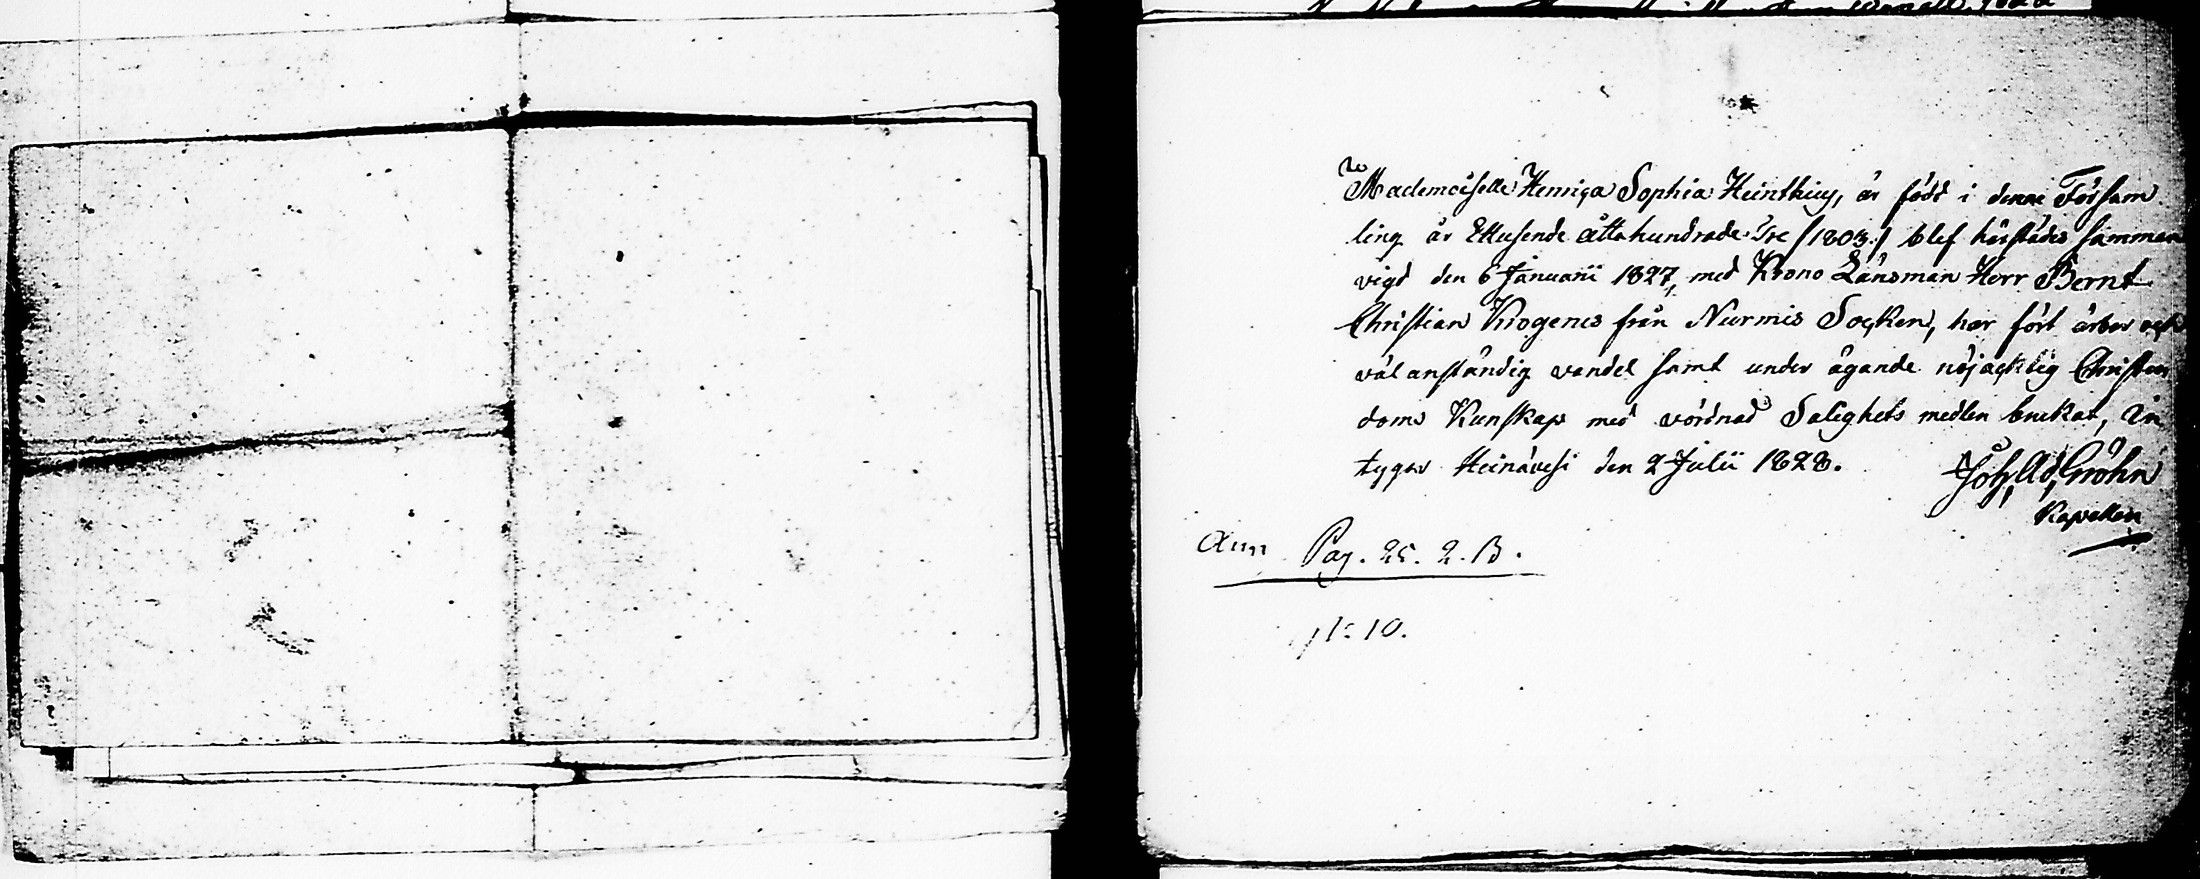 Mademoiselle Henrica Sophia Heinthius, är född i denne Försam
ling år Ettusende åttahundrade Tre /1803:/ blef härstädes samman
vigd den 6 Januarii 1827, med Krono Länsman Herr Bernt
Christian Krogerus från Nurmis Socken, har fört ärbar och
välanständig vandel samt under ägande nöjacktig Christen
doms Kunskap med vördnad Salighets medlen brukat, in
tygar Heinävesi den 2 Julii 1828.
Joh. Ad. Gröhn
Kapellan
Ann Pag. 25. 2. B.
N:o 10.